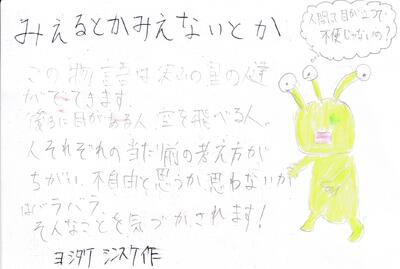 みえるとかみえないとか
人間て目が2つで
不便じゃないの?
この物語は
がでてきます。
後ろに目がある人、空を飛べる人。
人それぞれの当た前の考え方が
ちがい、不自由と思うか、思わないか
はバラバラ。
そんなことを気づかされます!
ヨシタケ シンスケ作